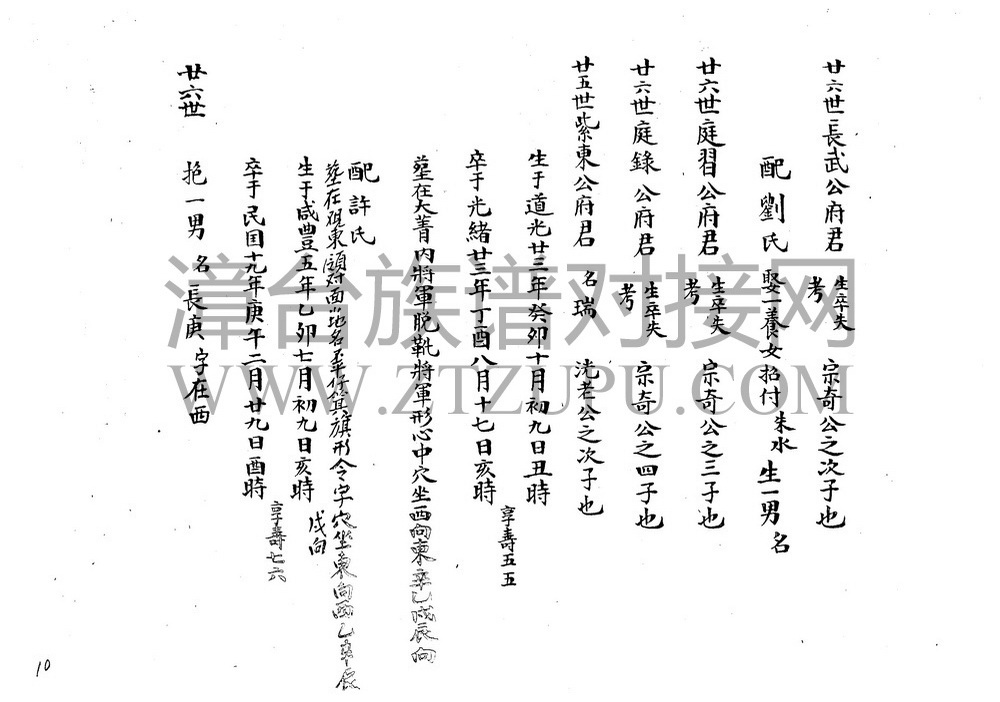 廿六世長武公府君 生卒失考 宗奇公之次子也
配劉氏 娶一養女招付朱水 生一男名
廿六世庭習公府君 生卒失考 宗奇公之三子也
廿六世庭錄公府君 生卒失考 宗奇公之四子也
廿五世紫東公府君 名瑞 洸老公之次子也
生于道光廿三年癸卯十月初九日丑時
卒于光緒廿三年丁酉八月十七日亥時 享壽五五
墓在大菁內將軍脫靴將軍形心中穴坐西向東辛乙戌辰向
配許氏
墓在祖東頭對面地名 旗形令字穴坐東向西乙辛辰
戌向
生于咸豐五年乙卯七月初九日亥時
卒于民国十九年庚午二月廿九日酉時 享壽七六
廿六世 抱一男 名長庚 字在西
10
漳台族谱对接网
WWW.ZTZUPU.COM